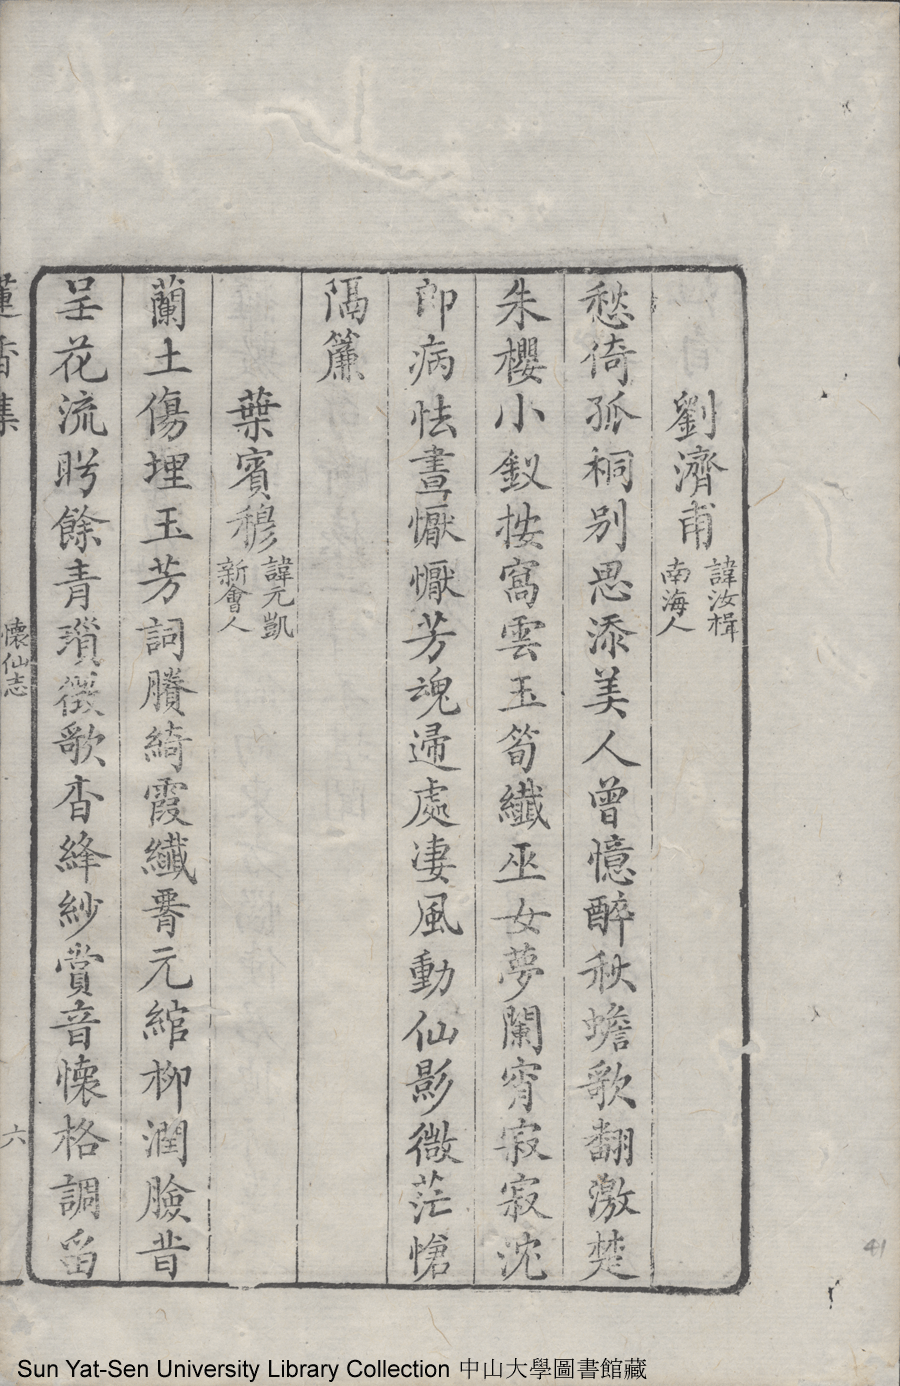 劉濟甫 諱汝楫 南海人
愁倚孤桐別思添美人曾憶醉秋蟾歌翻激楚
朱櫻小釵按窩雲玉筍纖巫女夢闌宵寂寂沈
郎病怯晝懨懨芳魂歸處淒風動仙影微茫愴
隔簾
葉賓穆 諱元凱 新會人
蘭土傷埋玉芳詞賸綺霞纖脣元綰柳潤臉昔
呈花流盻餘青瑣徵歌杳絳紗賞音懷格調留
蓮香集 懷仙志 六
41
Sun Yat-Sen University Library Collection 中山大學圖書館藏